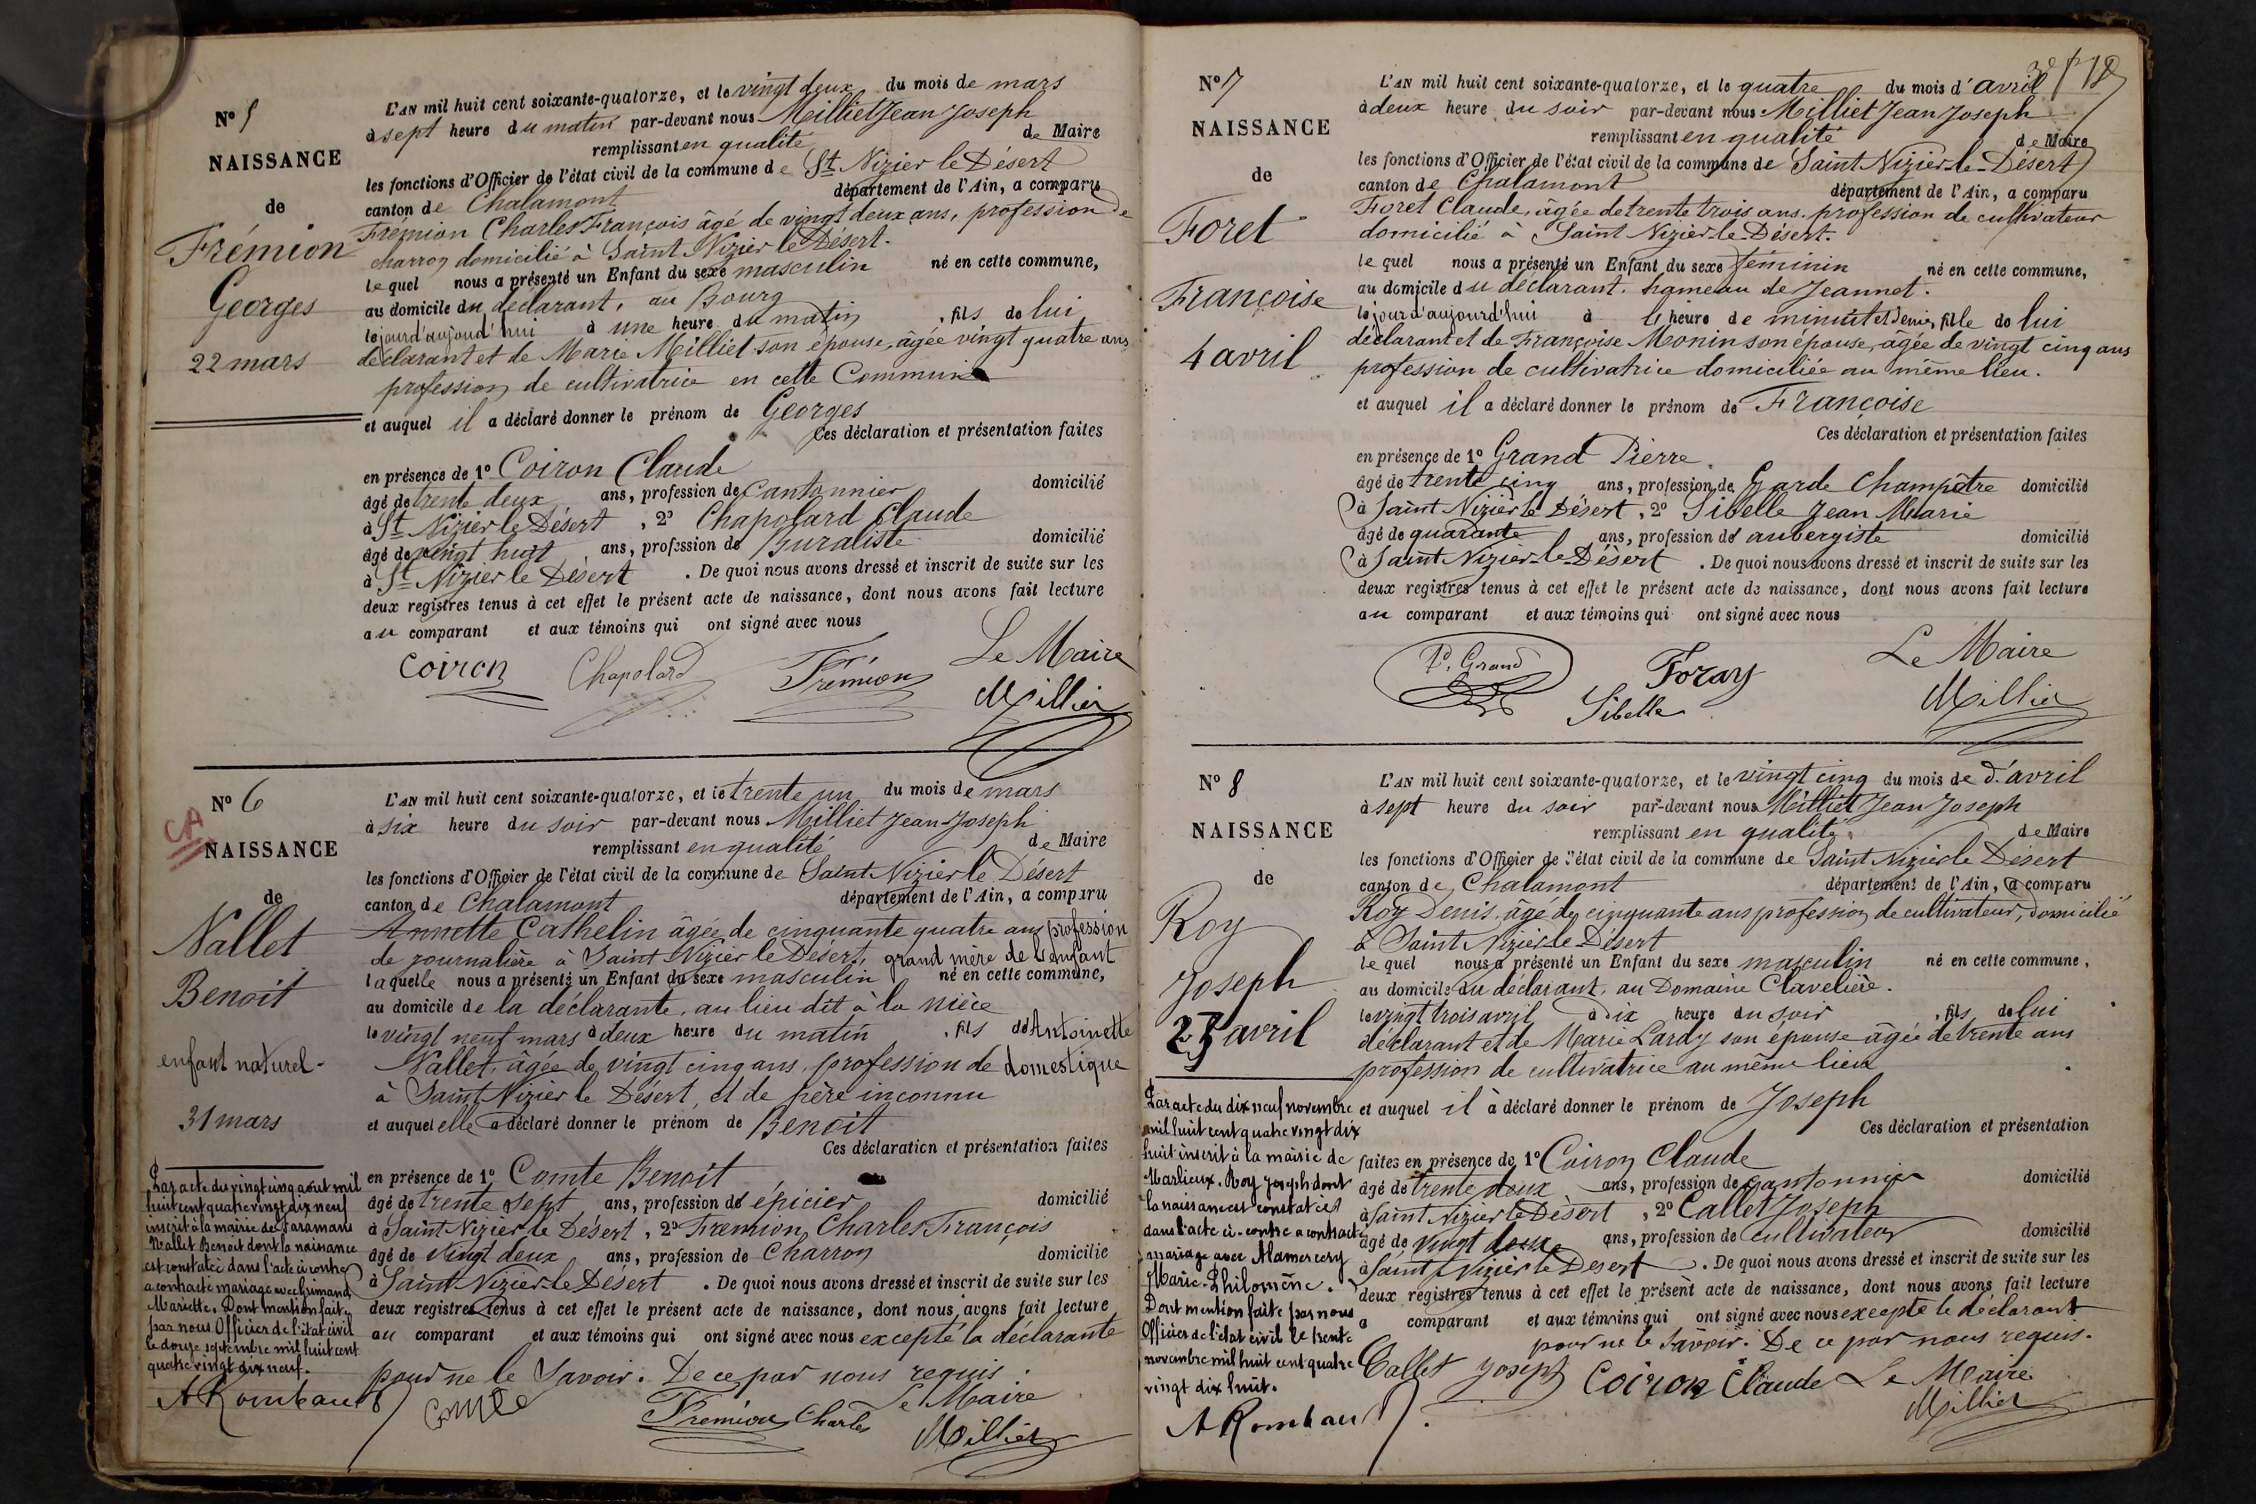 N° 5
NAISSANCE
de
Frémion
Georges
22 mars
L'AN mil huit cent soixante-quatorze, et le vingt deux du mois de mars
à sept heure du matin par-devant nous Milliet Jean Joseph
remplissant en qualité de Maire
les fonctions d'Officier de l'état civil de la commune de St Nizier le Désert
canton de Chalamont département de l'Ain, a comparu
Frémion Charles François âgé de vingt deux ans, profession de
charron domicilié à Saint Nizier le Désert.
lequel nous a présenté un Enfant du sexe masculin né en cette commune,
au domicile du déclarant, au Bourg
le jour d'aujourd'hui à une heure du matin, fils de lui
déclarant et de Marie Milliet son épouse, âgée vingt quatre ans,
profession de cultivatrice en cette Commune
et auquel il a déclaré donner le prénom de Georges
Ces déclaration et présentation faites
en présence de 1° Coiron Claude
âgé de trente deux ans, profession de Cantonnier domicilié
à St Nizier le Désert, 2° Chapolard Claude
âgé de vingt huit ans, profession de Buraliste domicilié
à St Nizier le Désert. De quoi nous avons dressé et inscrit de suite sur les
deux registres tenus à cet effet le présent acte de naissance, dont nous avons fait lecture
au comparant et aux témoins qui ont signé avec nous
Coiron Chapolard Frémion Le Maire
Milliet
N° 6
CA
NAISSANCE
de
Nallet
Benoit
enfant naturel-
31 mars
L'AN mil huit cent soixante-quatorze, et le trente un du mois de mars
à six heure du soir par-devant nous Milliet Jean-Joseph
remplissant en qualité de Maire
les fonctions d'Officier de l'état civil de la commune de Saint Nizier le Désert
canton de Chalamont département de l'Ain, a comparu
Annette Cathelin âgée de cinquante quatre ans profession
de journalière à Saint Nizier le Désert, grand mère de l'enfant
laquelle nous a présenté un Enfant du sexe masculin né en cette commune,
au domicile de la déclarante, au lieu dit à la Nièce
le vingt neuf mars à deux heure du matin, fils de Antoinette
Nallet, âgée de vingt cinq ans, profession de domestique
à Saint Nizier le Désert, et de père inconnu
et auquel elle a déclaré donner le prénom de Benoit
Ces déclaration et présentation faites
en présence de 1° Comte Benoit
âgé de trente sept ans, profession de épicier domicilié
à Saint-Nizier le Désert, 2° Fremion Charles François
âgé de vingt deux ans, profession de Charron domicilié
à Saint Nizier le Désert. De quoi nous avons dressé et inscrit de suite sur les
deux registres tenus à cet effet le présent acte de naissance, dont nous avons fait lecture
au comparant et aux témoins qui ont signé avec nous excepté la déclarante
pour ne le Savoir. De ce par nous requis.
Comte Fremion Charles Le Maire
Milliet
Par acte du vingt cinq août mil
huit cent quatre vingt dix neuf
inscrit à la mairie de Faramans
Nallet Benoit dont la naissance
est constatée dans l'acte ci contre
a contracté mariage avec
Mariette. Dont mention faite
par nous Officier de l'état civil
le douze septembre mil huit cent
quatre vingt dix neuf.
A Rombau
N° 7
NAISSANCE
de
Foret
Françoise
4 avril
L'AN mil huit cent soixante-quatorze, et le quatre du mois d'avril
à deux heure du soir par-devant nous Milliet Jean Joseph
remplissant en qualité de Maire
les fonctions d'Officier de l'état civil de la commune de Saint Nizier-le-Désert
canton de Chalamont département de l'Ain, a comparu
Foret Claude, âgée de trente trois ans. profession de cultivateur
domicilié à Saint Nizier-le-Désert.
lequel nous a présenté un Enfant du sexe féminin né en cette commune,
au domicile du déclarant. hameau de Jeannet.
le jour d'aujourd'hui à l'heure de minuit et demie, fille de lui
déclarant et de Françoise Monin son épouse, âgée de vingt cinq ans
profession de cultivatrice domiciliée au même lieu.
et auquel il a déclaré donner le prénom de Françoise
Ces déclaration et présentation faites
en présence de 1° Grand Pierre
âgé de trente cinq ans, profession de Garde Champêtre domicilié
à Saint Nizier le Désert, 2° Sibelle Jean Marie
âgé de quarante ans, profession de aubergiste domicilié
à Saint Nizier-le-Désert. De quoi nous avons dressé et inscrit de suite sur les
deux registres tenus à cet effet le présent acte de naissance, dont nous avons fait lecture
au comparant et aux témoins qui ont signé avec nous
P. Grand Foray Le Maire
Sibelle Milliet
N° 8
NAISSANCE
de
Roy
Joseph
23 avril
L'AN mil huit cent soixante-quatorze, et le vingt cinq du mois de d'avril
à sept heure du soir par-devant nous Milliet Jean Joseph
remplissant en qualité de Maire
les fonctions d'Officier de l'état civil de la commune de Saint Nizier le Désert
canton de Chalamont département de l'Ain, a comparu
Roy Denis, âgé de cinquante ans profession de cultivateur, domicilié
à Saint Nizier-le-Désert
lequel nous a présenté un Enfant du sexe masculin né en cette commune,
au domicile du déclarant, au Domaine Clavelière.
le vingt trois avril à dix heure du soir, fils de lui
déclarant et de Marie Lardy son épouse âgée de trente ans
profession de cultivatrice au même lieu
et auquel il à déclaré donner le prénom de Joseph
Ces déclaration et présentation
faites en présence de 1° Coiron Claude
âgé de trente deux ans, profession de cantonnier domicilié
à Saint Nizier le Désert, 2° Callet Joseph
âgé de vingt deux ans, profession de Cultivateur domicilié
à Saint Nizier le Desert. De quoi nous avons dressé et inscrit de suite sur les
deux registres tenus à cet effet le présent acte de naissance, dont nous avons fait lecture
a comparant et aux témoins qui ont signé avec nous excepté le déclarant
pour ne le Savoir. De ce par nous requis.
Callet Joseph Coiron Claude Le Maire
Milliet
Par acte du dix neuf novembre
mil huit cent quatre vingt dix
huit inscrit à la mairie de
Marlieux. Roy Joseph dont
la naissance est constatée
dans l'acte ci-contre a contracté
mariage avec Mamercery
Marie-Philomène.
Dont mention faite par nous
Officier de l'état civil le trente
novembre mil huit cent quatre
vingt dix huit.
A Rombau